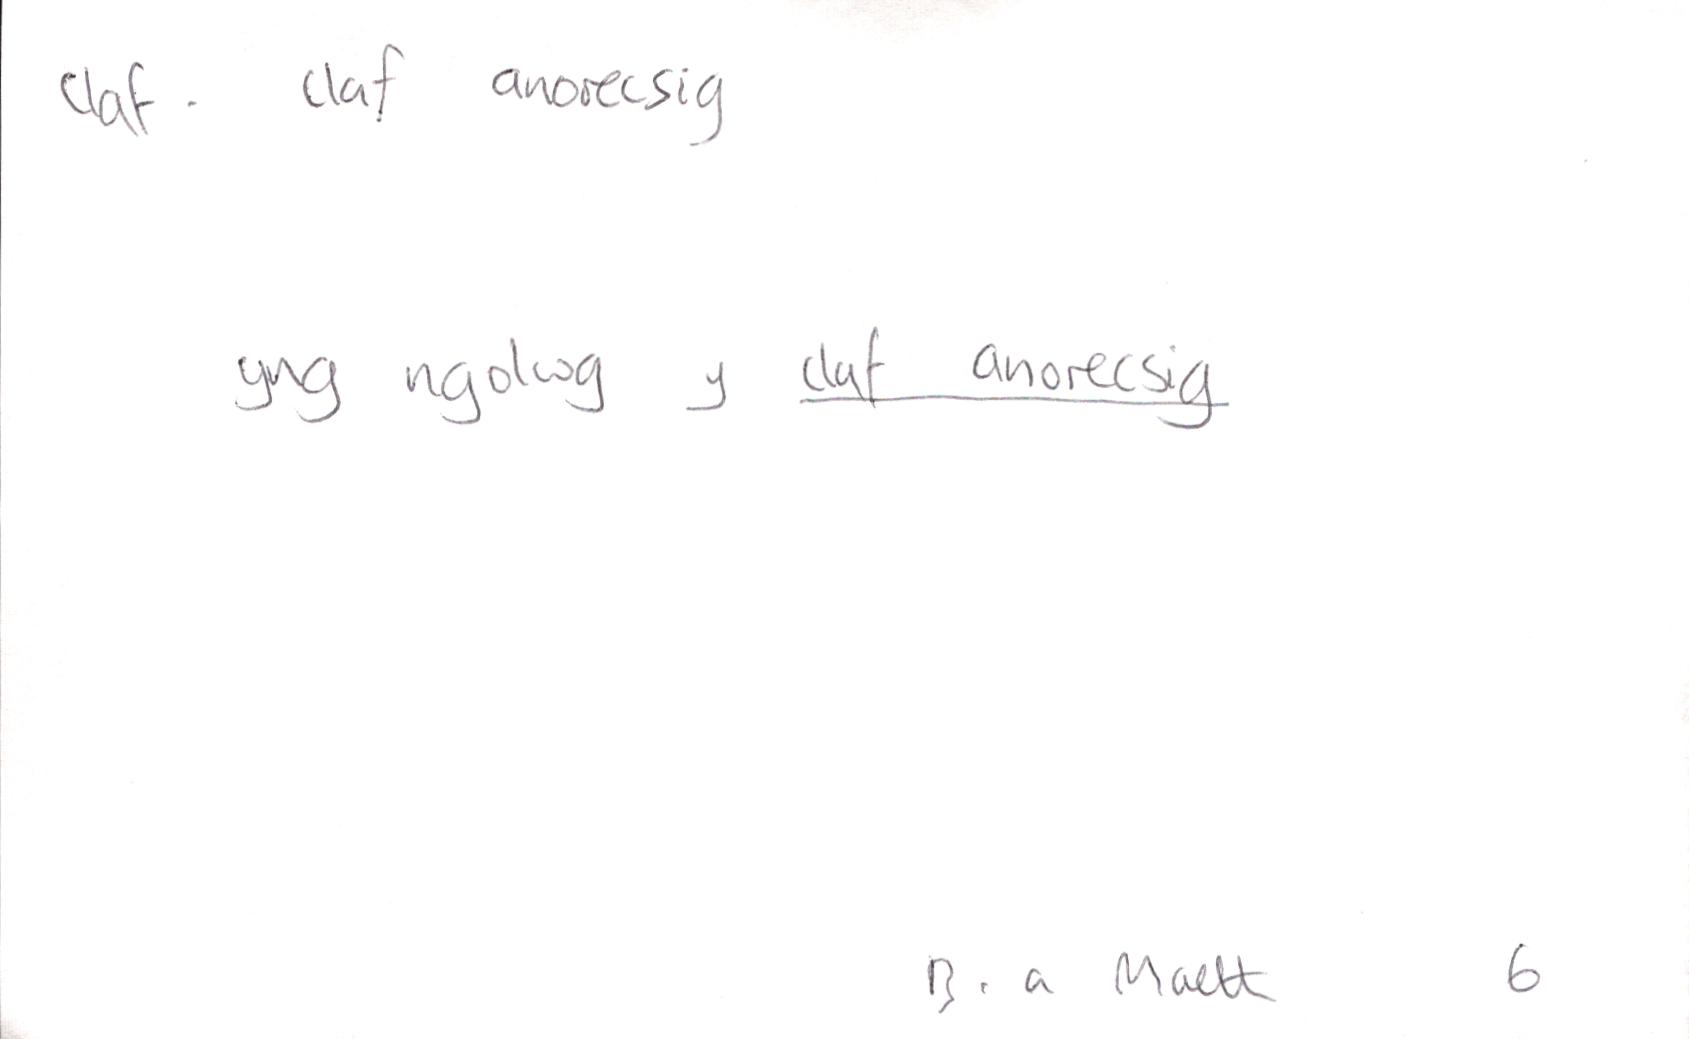 claf. claf anorecsig
yng ngolwg y claf anorecsig
B. a Maeth 6